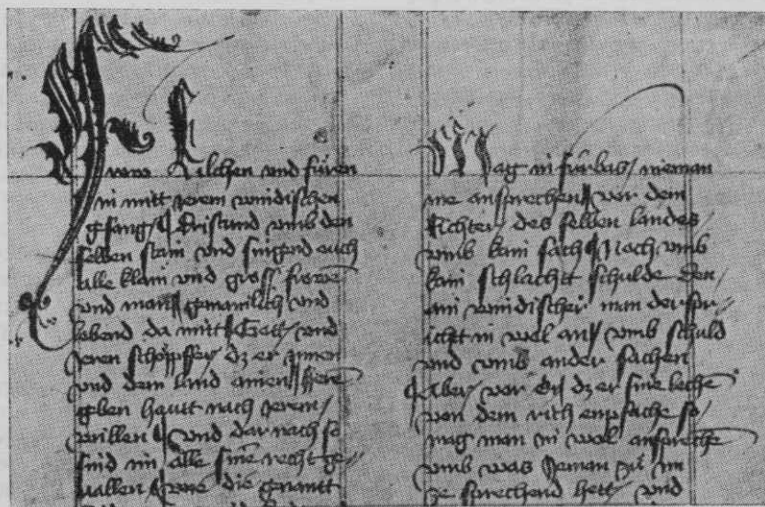 kilchen vnd fuͤren
in mitt jerem windischen
gsang / Dristund vmb den
selben stain vnd singend auch
alle klain vnd gross frowe
vnd man gemainlich vnd
lobend da mitt Gott / vnd
jeren schoͤpffer / dz er jnnen
vnd dem land ainen Here
geben hautt nach jerem /
willen / vnd dar nach so
sind im alle sine recht ge=
uallen / wie die genantt
Mag in fürbas / nieman
me ansprechen / vor dem
Richter / des selben landes /
vmb kain sach / Noch vmb
kain schlachtt schulde Den /
ain windischer man der spr=
icht in wol an / vmb schuld
vnd vmb ander sachen
Aber / vor dz er sine leche
von dem rich enpfache so /
mag man in wol anspreche
vmb was jeman zů im
ze sprechend hett / vnd